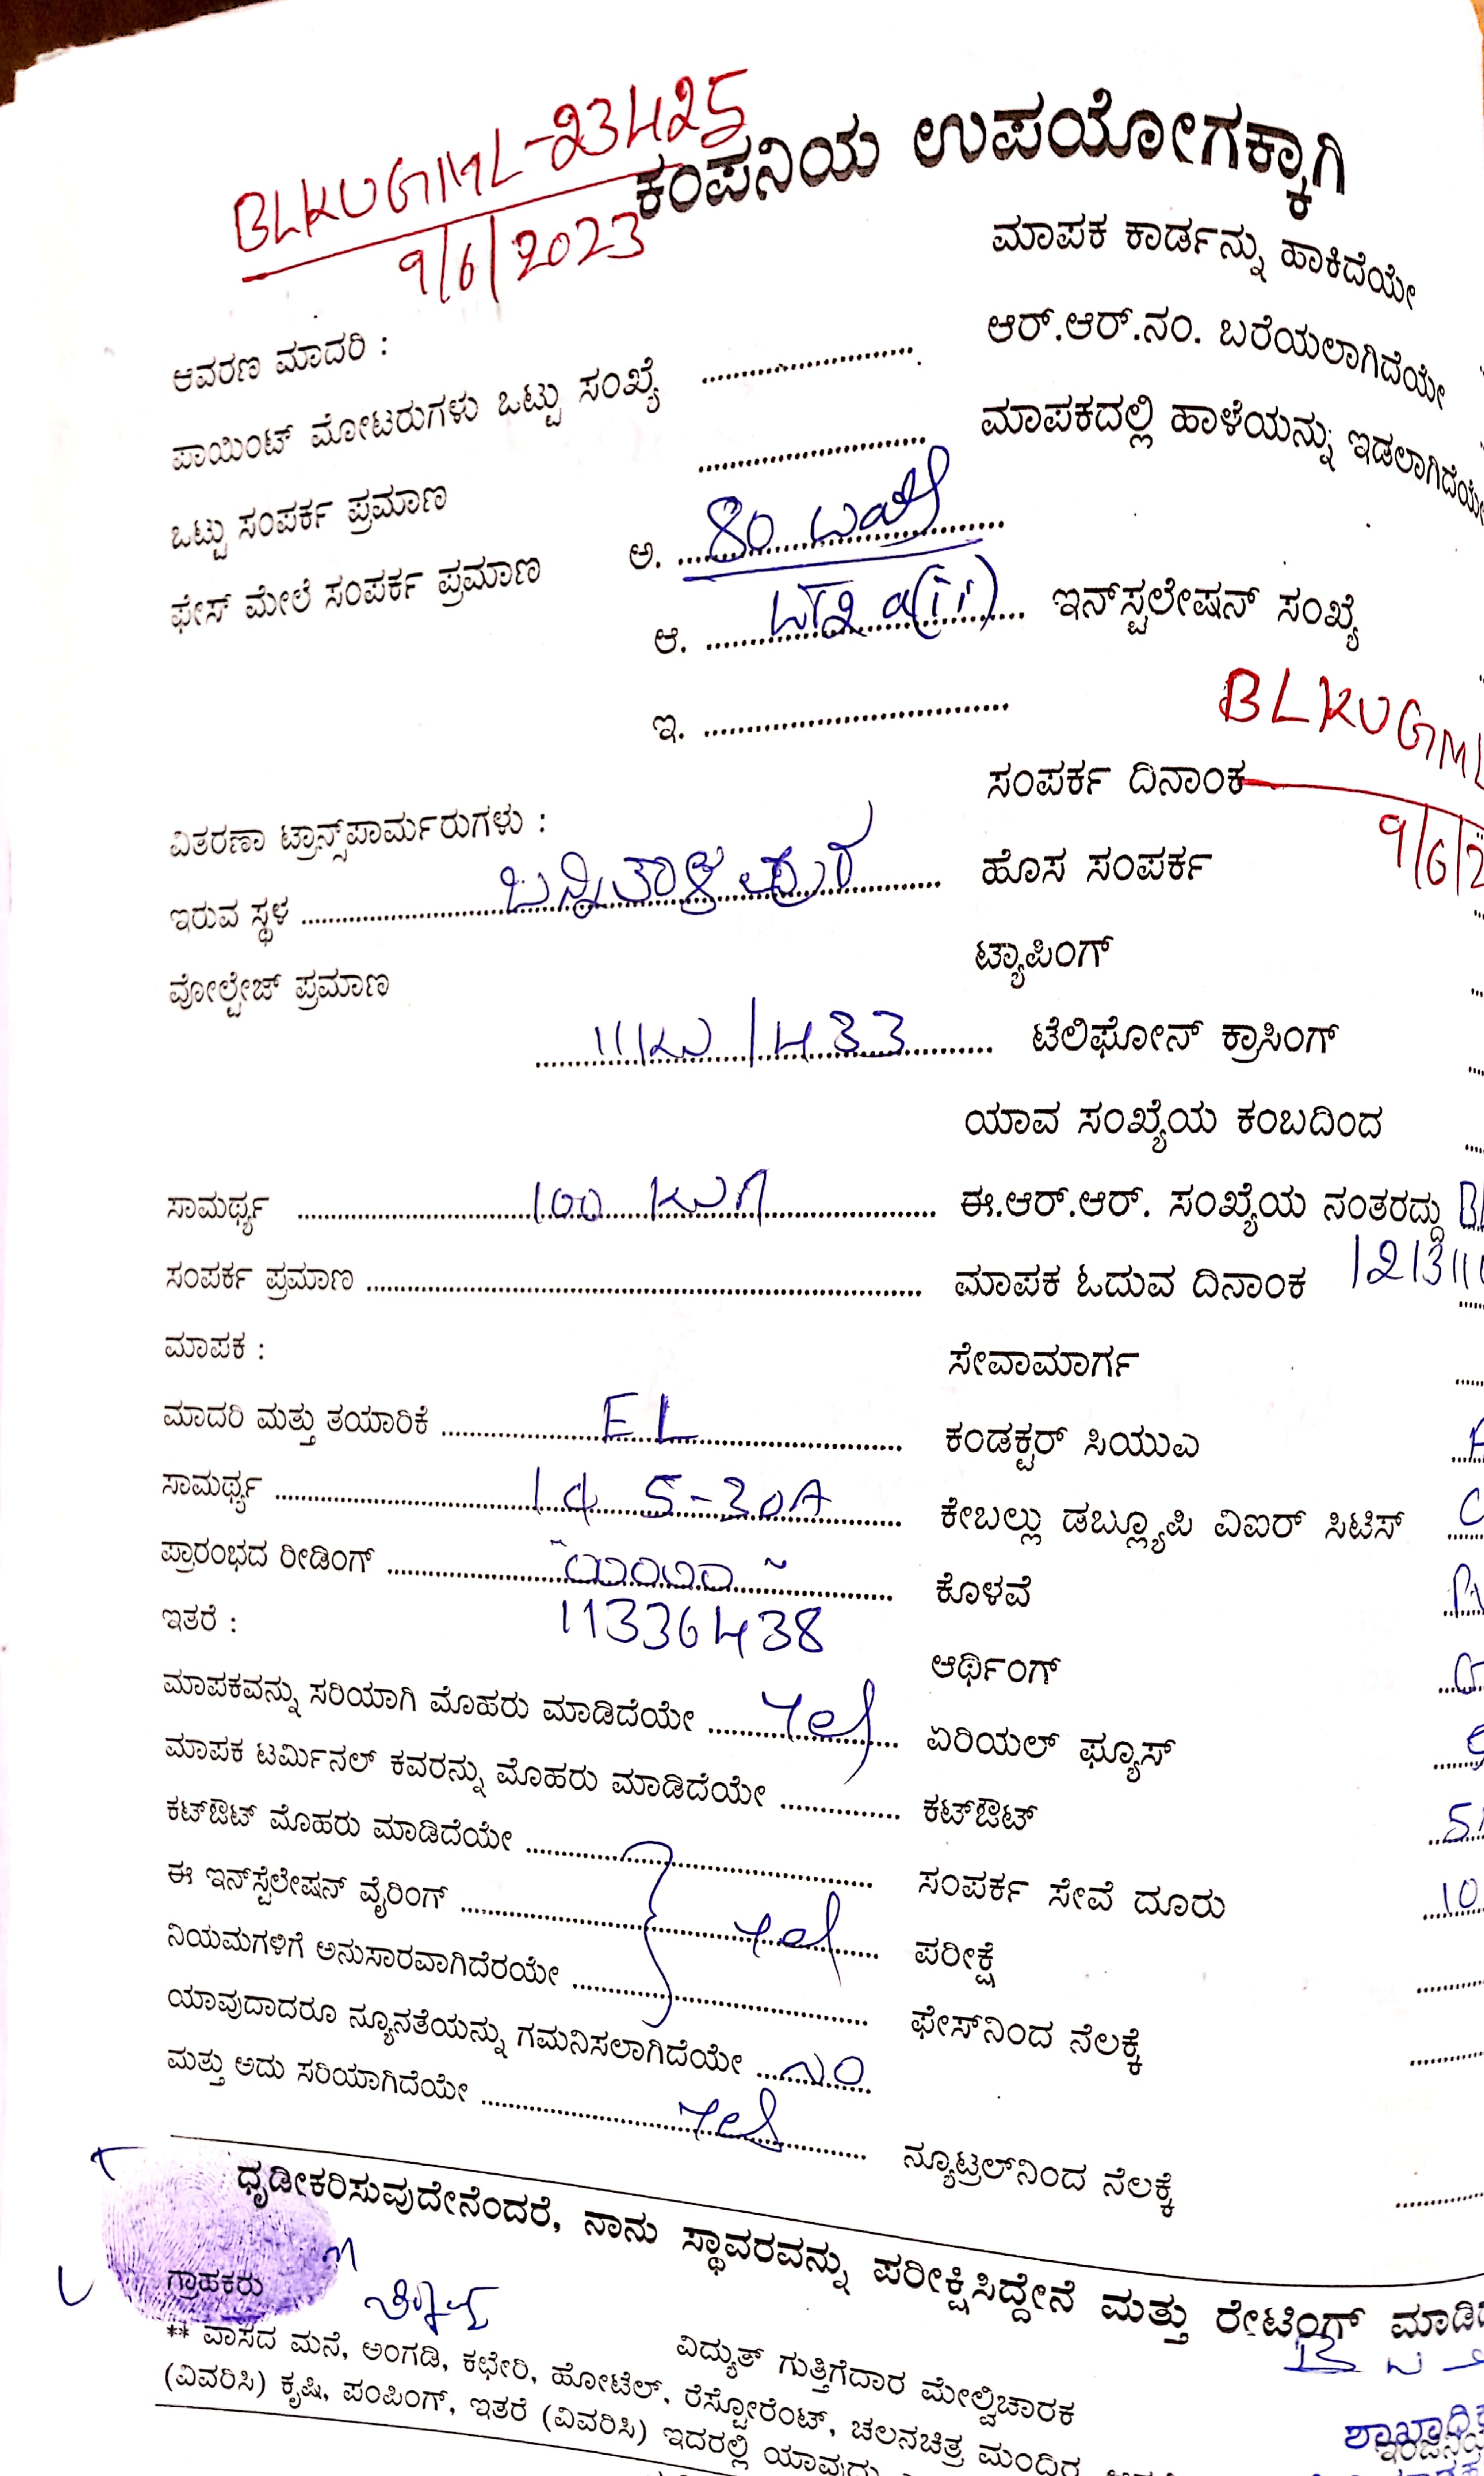 BLKUGML-23425
9/6/2023
ಕಂಪನಿಯ ಉಪಯೋಗಕ್ಕಾಗಿ
ಮಾಪಕ ಕಾರ್ಡನ್ನು ಹಾಕಿದೆಯೇ
ಆವರಣ ಮಾದರಿ :
ಆರ್.ಆರ್.ನಂ. ಬರೆಯಲಾಗಿದೆಯೇ
ಪಾಯಿಂಟ್ ಮೋಟರುಗಳು ಒಟ್ಟು ಸಂಖ್ಯೆ ....................
ಮಾಪಕದಲ್ಲಿ ಹಾಳೆಯನ್ನು ಇಡಲಾಗಿದೆಯೇ
ಒಟ್ಟು ಸಂಪರ್ಕ ಪ್ರಮಾಣ ....................
ಫೇಸ್ ಮೇಲೆ ಸಂಪರ್ಕ ಪ್ರಮಾಣ ಅ. 80
ಆ. (ii) ಇನ್‌ಸ್ಟಲೇಷನ್ ಸಂಖ್ಯೆ
ಇ. ....................
BLKUGML
ಸಂಪರ್ಕ ದಿನಾಂಕ
9/6/2
ವಿತರಣಾ ಟ್ರಾನ್ಸ್‌ಪಾರ್ಮರುಗಳು :
ಹೊಸ ಸಂಪರ್ಕ
ಇರುವ ಸ್ಥಳ ಬನ್ನಿತಾಳಪುರ
ಟ್ಯಾಪಿಂಗ್
ವೋಲ್ಟೇಜ್ ಪ್ರಮಾಣ
11KV/433 ಟೆಲಿಫೋನ್ ಕ್ರಾಸಿಂಗ್
ಯಾವ ಸಂಖ್ಯೆಯ ಕಂಬದಿಂದ
ಸಾಮರ್ಥ್ಯ 100 KVA ಈ.ಆರ್.ಆರ್. ಸಂಖ್ಯೆಯ ನಂತರದ್ದು
ಸಂಪರ್ಕ ಪ್ರಮಾಣ .................... ಮಾಪಕ ಓದುವ ದಿನಾಂಕ
ಮಾಪಕ : ಸೇವಾಮಾರ್ಗ
ಮಾದರಿ ಮತ್ತು ತಯಾರಿಕೆ EL ಕಂಡಕ್ಟರ್ ಸಿಯುಎ
ಸಾಮರ್ಥ್ಯ 1ϕ 5-30A ಕೇಬಲ್ಲು ಡಬ್ಲ್ಯೂಪಿ ವಿಐರ್ ಸಿಟಿಸ್
ಪ್ರಾರಂಭದ ರೀಡಿಂಗ್ .................... ಕೊಳವೆ
ಇತರೆ : 11336438 ಆರ್ಥಿಂಗ್
ಮಾಪಕವನ್ನು ಸರಿಯಾಗಿ ಮೊಹರು ಮಾಡಿದೆಯೇ Yes ಏರಿಯಲ್ ಫ್ಯೂಸ್
ಮಾಪಕ ಟರ್ಮಿನಲ್ ಕವರನ್ನು ಮೊಹರು ಮಾಡಿದೆಯೇ .............. ಕಟ್‌ಔಟ್
ಕಟ್‌ಔಟ್ ಮೊಹರು ಮಾಡಿದೆಯೇ .................... ಸಂಪರ್ಕ ಸೇವೆ ದೂರು 10
ಈ ಇನ್‌ಸ್ಟೆಲೇಷನ್ ವೈರಿಂಗ್ Yes ಪರೀಕ್ಷೆ
ನಿಯಮಗಳಿಗೆ ಅನುಸಾರವಾಗಿದೆರಯೇ .................... ಫೇಸ್‌ನಿಂದ ನೆಲಕ್ಕೆ
ಯಾವುದಾದರೂ ನ್ಯೂನತೆಯನ್ನು ಗಮನಿಸಲಾಗಿದೆಯೇ NO
ಮತ್ತು ಅದು ಸರಿಯಾಗಿದೆಯೇ Yes ನ್ಯೂಟ್ರಲ್‌ನಿಂದ ನೆಲಕ್ಕೆ
ಧೃಡೀಕರಿಸುವುದೇನೆಂದರೆ, ನಾನು ಸ್ಥಾವರವನ್ನು ಪರೀಕ್ಷಿಸಿದ್ದೇನೆ ಮತ್ತು ರೇಟಿಂಗ್
ಗ್ರಾಹಕರು
ವಿದ್ಯುತ್ ಗುತ್ತಿಗೆದಾರ ಮೇಲ್ವಿಚಾರಕ
** ವಾಸದ ಮನೆ, ಅಂಗಡಿ, ಕಛೇರಿ, ಹೋಟೆಲ್, ರೆಸ್ಟೋರೆಂಟ್, ಚಲನಚಿತ್ರ ಮಂದಿರ
(ವಿವರಿಸಿ) ಕೃಷಿ, ಪಂಪಿಂಗ್, ಇತರೆ (ವಿವರಿಸಿ) ಇದರಲ್ಲಿ ಯಾವುದು